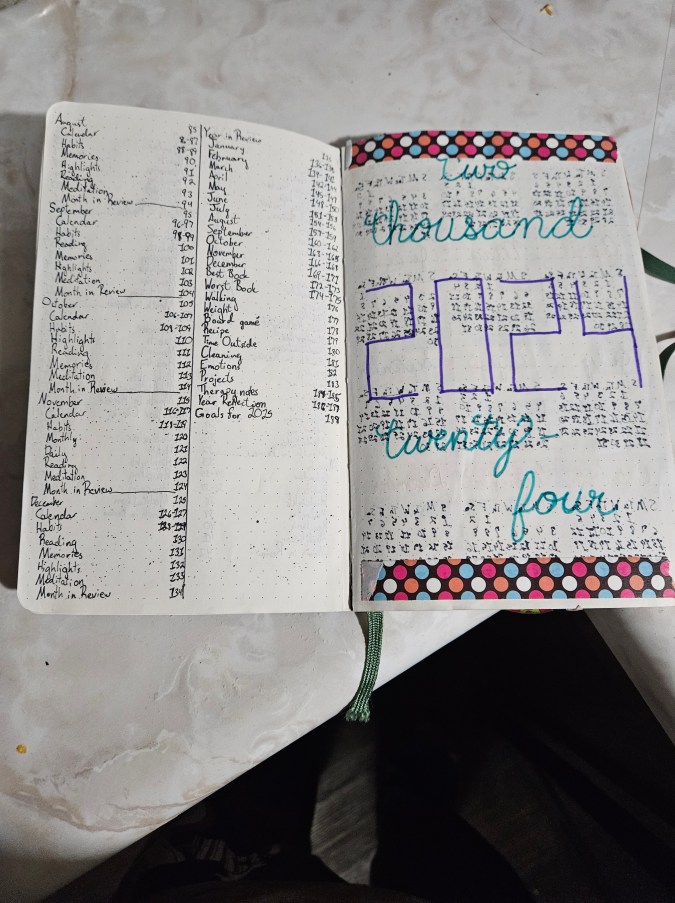 August 85
Calendar 86-87
Habits 88-89
Memories 90
Highlights 91
Reading 92
Meditation 93
Month in Review 94
September 95
Calendar 96-97
Habits 98-99
Reading 100
Memories 101
Highlights 102
Meditation 103
Month in Review 104
October 105
Calendar 106-107
Habits 108-109
Highlights 110
Reading 111
Memories 112
Meditation 113
Month in Review 114
November 115
Calendar 116-117
Habits 118-119
Monthly 120
Daily 121
Reading 122
Meditation 123
Month in Review 124
December 125
Calendar 126-127
Habits 128-129
Reading 130
Memories 131
Highlights 132
Meditation 133
Month in Review 134
Year in Review 135
January 136-138
February 139-141
March 142-144
April 145-147
May 148-150
June 151-153
July 154-156
August 157-159
September 160-162
October 163-165
November 166-168
December 169-171
Best Book 172-173
Worst Book 174-175
Walking 176
Weight 177
Board game 178
Recipe 179
Time Outside 180
Cleaning 181
Emotions 182
P
Projects 183
Therapy notes 184-185
Year Reflection 186-187
Goals for 2025 188
two
thousand
2024
twenty-
four